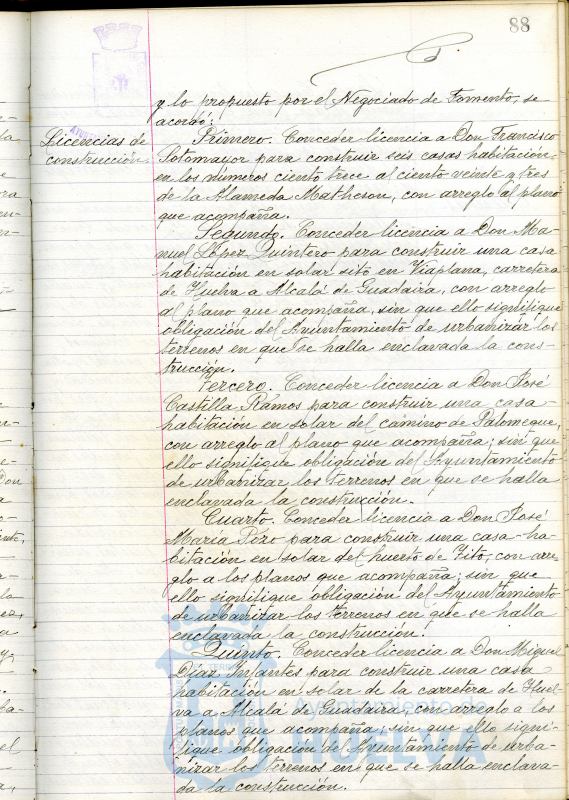 88
y lo propuesto por el Negociado de Fomento, se
acordó:
Licencias de
construcción.
Primero. Conceder licencia a Don Francisco
Sotomayor para construir seis casas habitación
en los números ciento trece al ciento veinte y tres
de la Alameda Matheson, con arreglo al plano
que acompaña.
Segundo. Conceder licencia a Don Ma-
nuel López Quintero para construir una casa
habitación en solar sito en Viaplana, carretera
de Huelva a Alcalá de Guadaira, con arreglo
al plano que acompaña, sin que ello signifique
obligación del Ayuntamiento de urbanizar los
terrenos en que se halla enclavada la cons-
trucción.
Tercero. Conceder licencia a Don José
Castilla Ramos para construir una casa-
habitación en solar del camino de Palomeque,
con arreglo al plano que acompaña; sin que
ello signifique obligación del Ayuntamiento
de urbanizar los terrenos en que se halla
enclavada la construcción.
Cuarto. Conceder licencia a Don José
María para construir una casa-ha-
bitación en solar del huerto de, con arre-
glo a los planos que acompaña; sin que
ello signifique obligación del Ayuntamiento
de urbanizar los terrenos en que se halla
enclavada la construcción.
Quinto. Conceder licencia a Don Miguel
Díaz Infantes para construir una casa
habitación en solar de la carretera de Huel-
va a Alcalá de Guadaira, con arreglo a los
planos que acompaña, sin que ello signi-
fique obligación del Ayuntamiento de urba-
nizar los terrenos en que se halla enclava-
da la construcción.
Ayuntamiento de
HUELVA